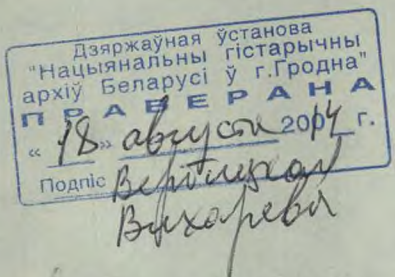 Дзяржаўная ўстанова
"Нацыянальны гістарычны
архіў Беларусі ў г.Гродна"
ПРАВЕРАНА
« 18 » августа 2014 г.
Подпіс
Вихарева